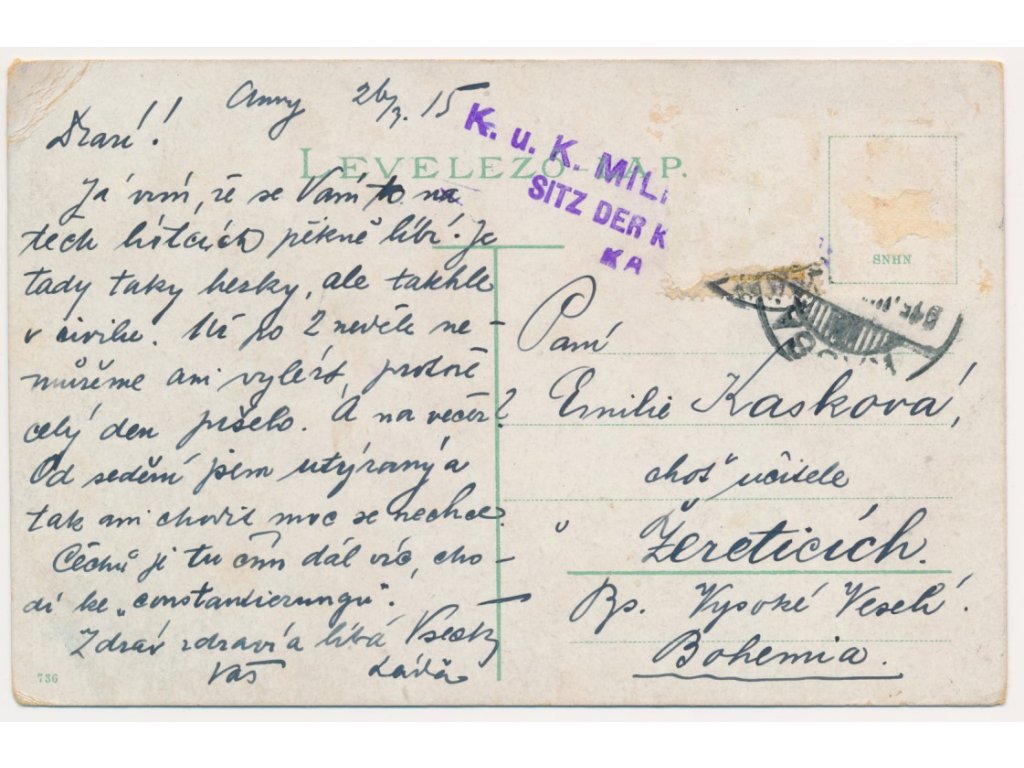 26/3. 15
Drazí!
LEVELEZŐ-LAP.
K. u. K. MILI
SITZ DER K
KA
Já vím, že se Vám to na
těch lístcích pěkně líbí. Je
tady taky hezky, ale takhle
v civilu. Má po 2 neděle ne-
můžeme ani vylézt, protože
celý den pršelo. A na večer?
Od sedění jsem utýraný a
tak ani chodit moc se nechce.
Čechů je tu čím dál víc, cho-
dí ke „constantierungu".
Zdráv zdraví a líbá Všecky
Váš Láďa
SNHN
Paní
Emilie Kasková,
choť učitele
v Žereticích.
Ps. Vysoké Veselí.
Bohemia.
736